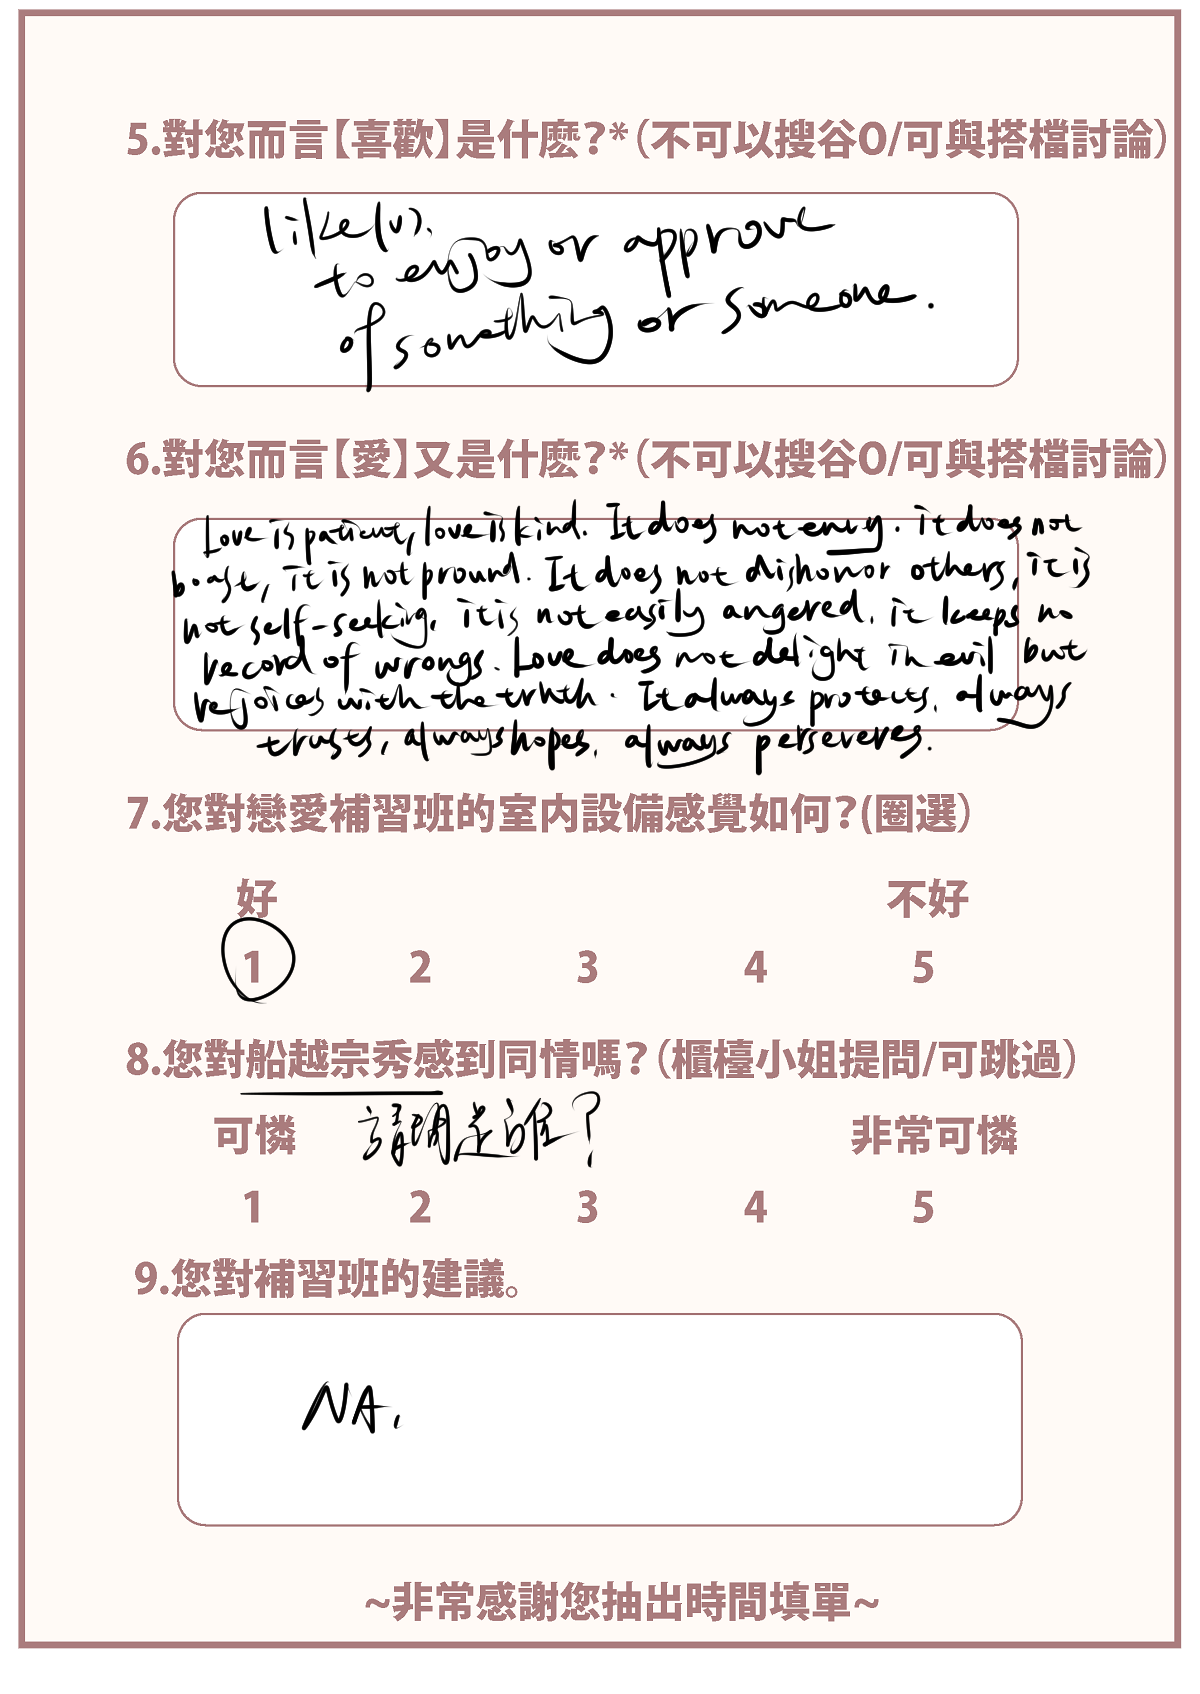 5.對您而言【喜歡】是什麽？*（不可以搜谷O/可與搭檔討論）
like(v).
to enjoy or approve
of something or someone.
6.對您而言【愛】又是什麽？*（不可以搜谷O/可與搭檔討論）
Love is patient, love is kind. It does not envy. it does not
boast, it is not pround. It does not dishonor others, it is
not self-seeking, it is not easily angered, it keeps no
record of wrongs. Love does not delight in evil but
rejoices with the truth. It always protects, always
trusts, always hopes, always perseveres.
7.您對戀愛補習班的室内設備感覺如何？(圈選）
好 不好
1 2 3 4 5
8.您對船越宗秀感到同情嗎？（櫃檯小姐提問/可跳過）
可憐 請問是誰？ 非常可憐
1 2 3 4 5
9.您對補習班的建議。
NA.
~非常感謝您抽出時間填單~